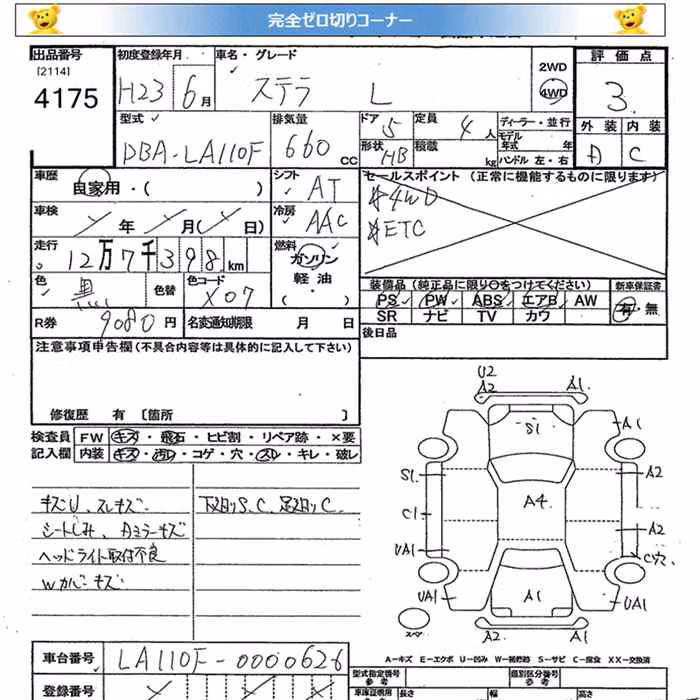 完全ゼロ切りコーナー
出品番号
[2114]
4175
初度登録年月
H23 6月
車名・グレード
ステラ L
2WD
4WD
評価点
3
外装 内装
A C
型式
DBA-LA110F
排気量
660 CC
ドア 5
形状 HB
定員 4人
積載 kg
ディーラー・並行
モデル年式 年
ハンドル 左・右
車歴
自家用・( )
シフト AT
冷房 AAC
車検
年 月( 日)
走行
12万7千398 km
燃料 ガソリン・軽油・( )
色 黒 色替
色コード X07
R券 9080円
名変通知期限 月 日
セールスポイント (正常に機能するものに限ります)
#4WD
#ETC
装備品 (純正品に限り○をつけてください)
PS PW ABS エアB AW
SR ナビ TV カワ
新車保証書
有・無
後日品
注意事項申告欄(不具合内容等は具体的に記入して下さい)
修復歴 有 [箇所 ]
検査員記入欄
FW キズ・飛石・ヒビ割・リペア跡・×要
内装 キズ・汚レ・コゲ・穴・スレ・キレ・破レ
キズU、スレキズ
シートしみ、Aミラーキズ
ヘッドライト取付不良
Wカバーキズ
下廻りS、C、足廻りC
U2
A2 A1
S1
A1
S1
A2
A4
C1
A2
UA1
C穴
UA1
A1
UA1
スペア
A2 A1
A-キズ E-エクボ U-凹み W-補修跡 S-サビ C-腐食 XX-交換済
車台番号 LA110F-0000626
登録番号
型式指定番号
参考
類別区分番号
参考
車体証明用
長さ
幅
高さ